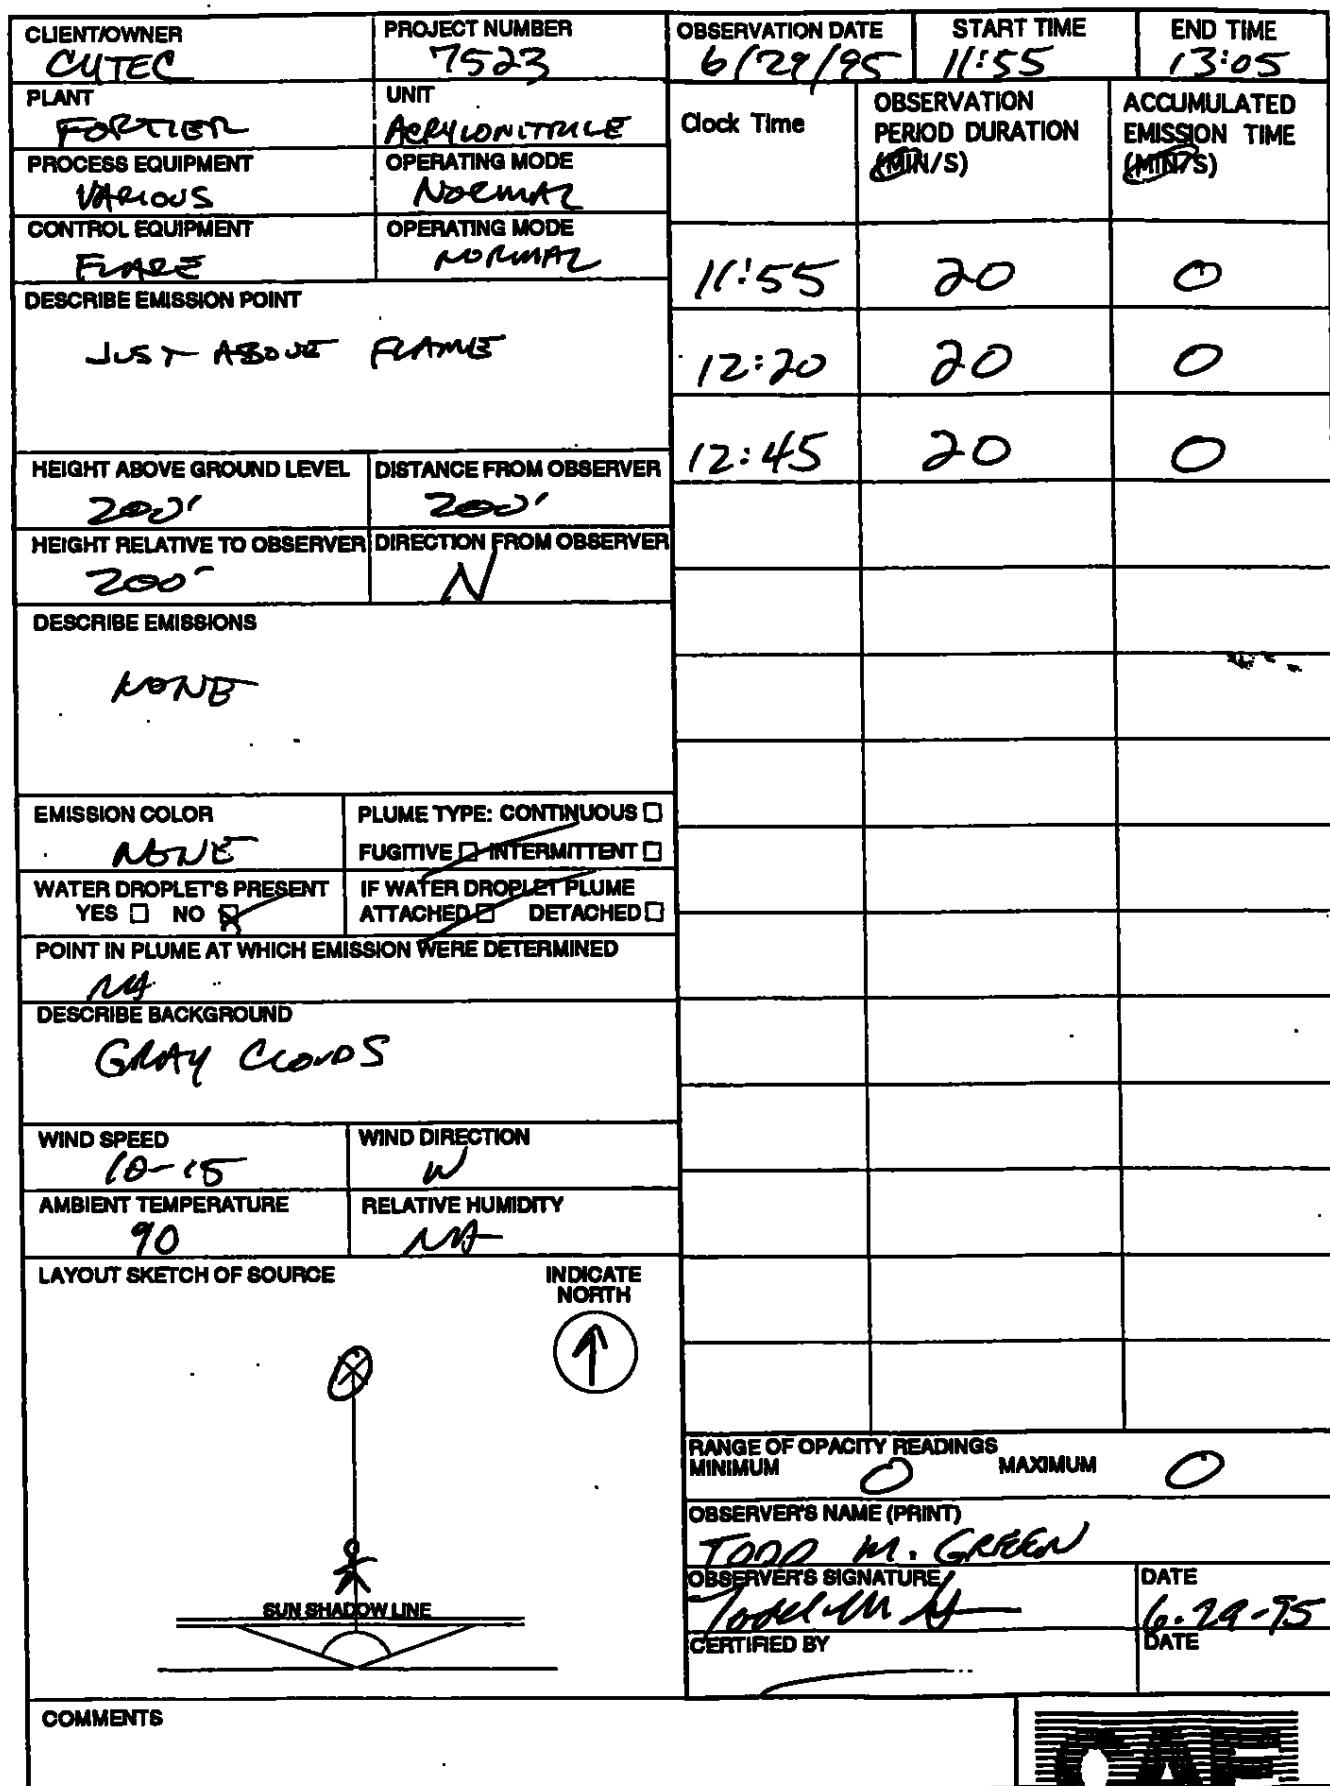 CLIENT/OWNER
CYTEC
PROJECT NUMBER
7523
OBSERVATION DATE
6/29/95
START TIME
11:55
END TIME
13:05
PLANT
FORTIER
UNIT
ACRYLONITRILE
PROCESS EQUIPMENT
VARIOUS
OPERATING MODE
NORMAL
CONTROL EQUIPMENT
FLARE
OPERATING MODE
NORMAL
DESCRIBE EMISSION POINT
JUST ABOVE FLAME
HEIGHT ABOVE GROUND LEVEL
200'
DISTANCE FROM OBSERVER
200'
HEIGHT RELATIVE TO OBSERVER
200'
DIRECTION FROM OBSERVER
N
DESCRIBE EMISSIONS
NONE
EMISSION COLOR
NONE
PLUME TYPE: CONTINUOUS □
FUGITIVE □ INTERMITTENT □
WATER DROPLET'S PRESENT
YES □ NO ☒
IF WATER DROPLET PLUME
ATTACHED □ DETACHED □
POINT IN PLUME AT WHICH EMISSION WERE DETERMINED
NA
DESCRIBE BACKGROUND
GRAY CLOUDS
WIND SPEED
10-15
WIND DIRECTION
W
AMBIENT TEMPERATURE
90
RELATIVE HUMIDITY
NA
LAYOUT SKETCH OF SOURCE
INDICATE
NORTH
SUN SHADOW LINE
Clock Time
OBSERVATION
PERIOD DURATION
(MIN/S)
ACCUMULATED
EMISSION TIME
(MIN/S)
11:55 20 0
12:20 20 0
12:45 20 0
RANGE OF OPACITY READINGS
MINIMUM 0 MAXIMUM 0
OBSERVER'S NAME (PRINT)
TODD M. GREEN
OBSERVER'S SIGNATURE
Todd M
DATE
6-29-95
CERTIFIED BY
DATE
COMMENTS
CAE